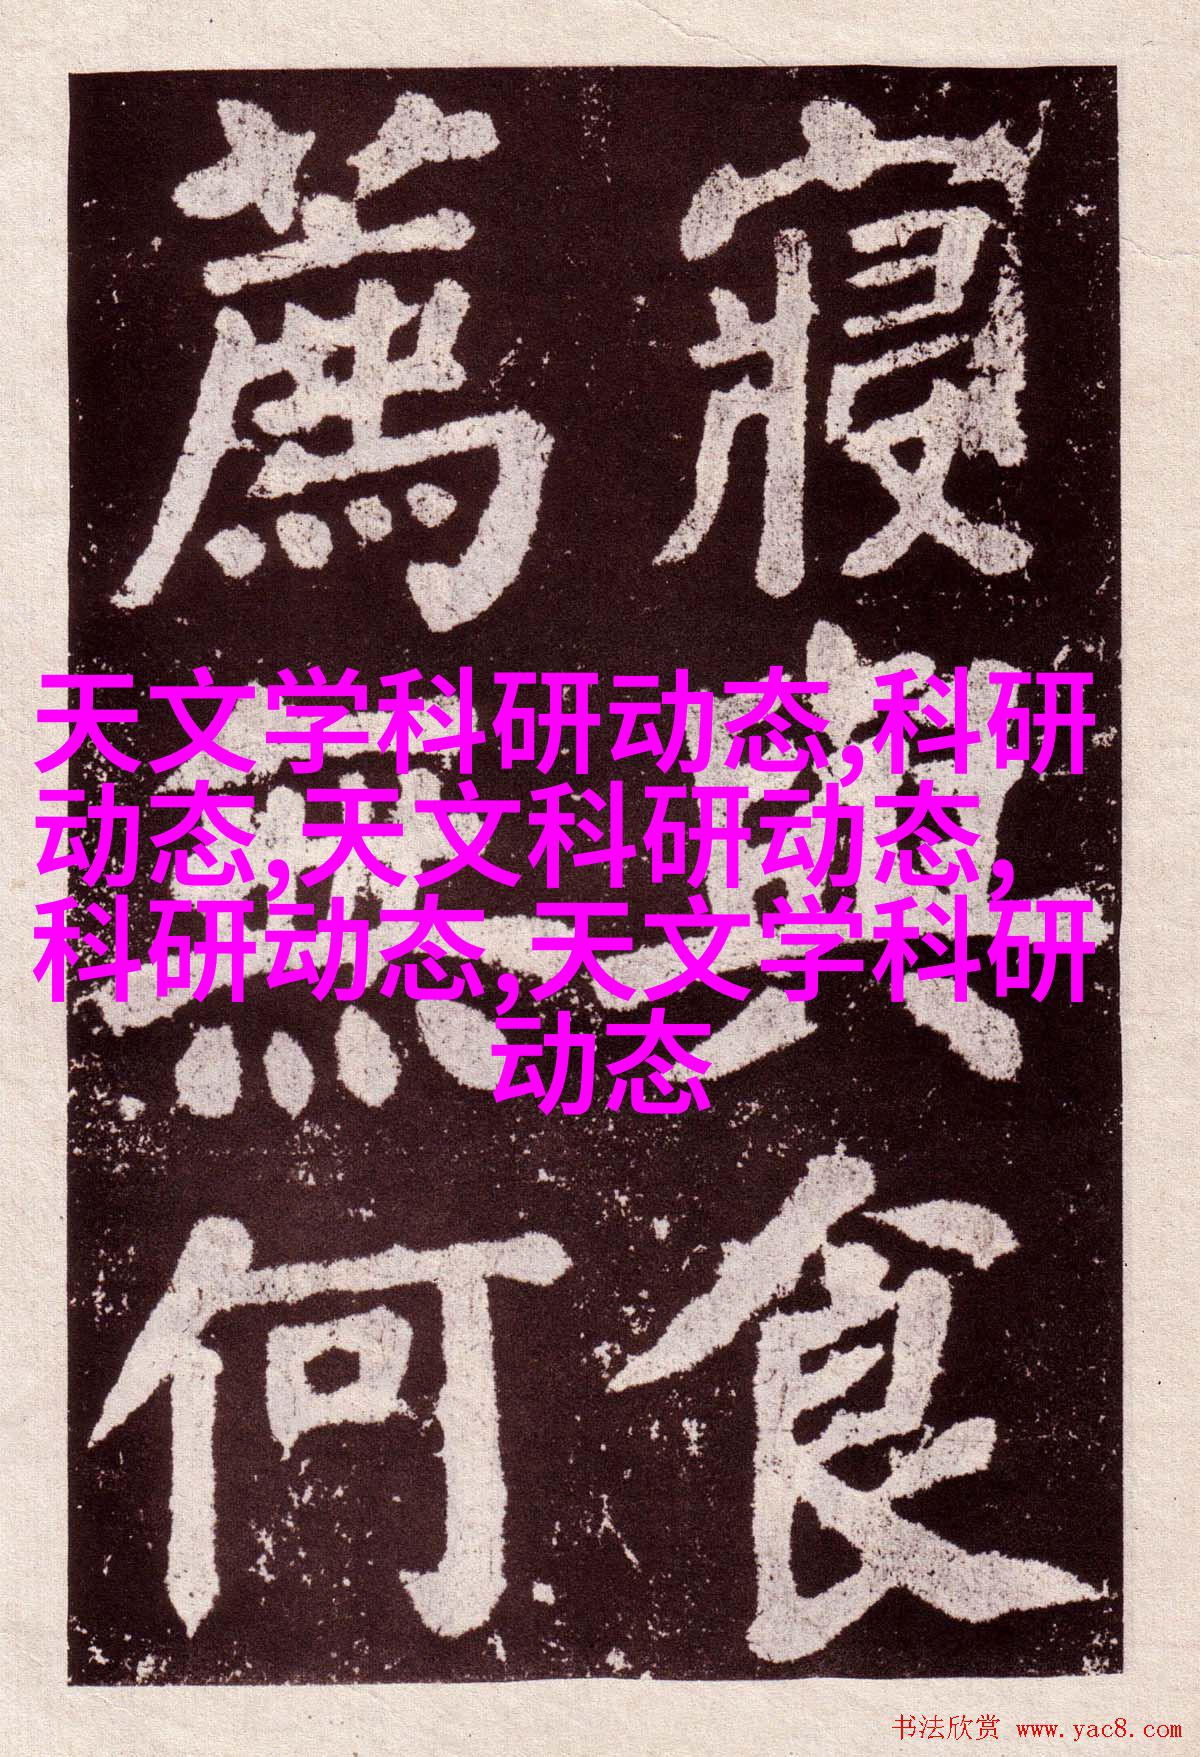 寢食
薦無何
天文学科研动态,科研
动态,天文科研动态,
科研动态,天文学科研
动态
书法欣赏 www.yac8.com